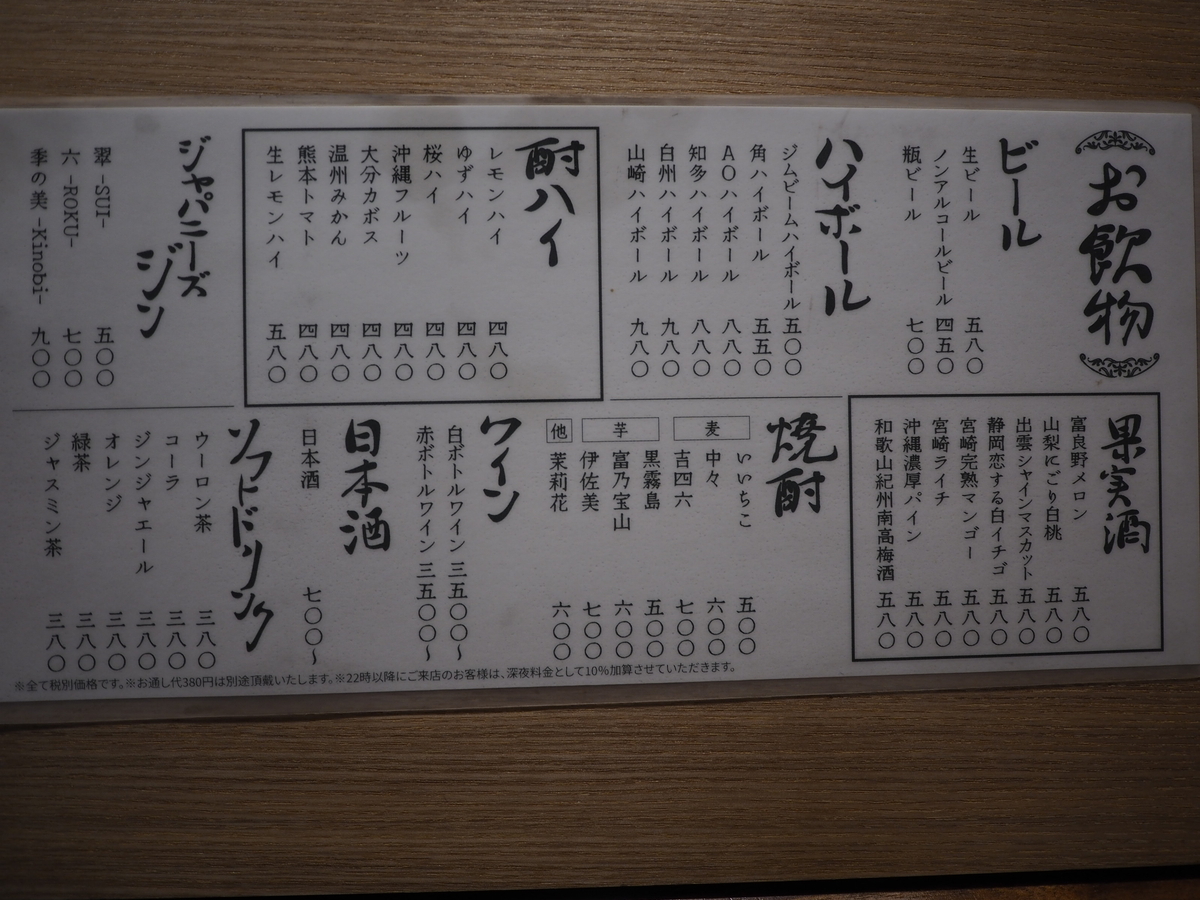 お飲物
ビール
生ビール 五八〇
ノンアルコールビール 四五〇
瓶ビール 七〇〇
ハイボール
ジムビームハイボール 五〇〇
角ハイボール 五五〇
AOハイボール 八八〇
知多ハイボール 八八〇
白州ハイボール 九八〇
山崎ハイボール 九八〇
酎ハイ
レモンハイ 四八〇
ゆずハイ 四八〇
桜ハイ 四八〇
沖縄フルーツ 四八〇
大分カボス 四八〇
温州みかん 四八〇
熊本トマト 四八〇
生レモンハイ 五八〇
ジャパニーズ
ジン
翠 -SUI- 五〇〇
六 -ROKU- 七〇〇
季の美 -Kinobi- 九〇〇
果実酒
富良野メロン 五八〇
山梨にごり白桃 五八〇
出雲シャインマスカット 五八〇
静岡恋する白イチゴ 五八〇
宮崎完熟マンゴー 五八〇
宮崎ライチ 五八〇
沖縄濃厚パイン 五八〇
和歌山紀州南高梅酒 五八〇
焼酎
麦
いいちこ 五〇〇
中々 六〇〇
吉四六 七〇〇
芋
黒霧島 五〇〇
富乃宝山 六〇〇
伊佐美 七〇〇
他
茉莉花 六〇〇
ワイン
白ボトルワイン 三五〇〇〜
赤ボトルワイン 三五〇〇〜
日本酒
日本酒 七〇〇〜
ソフトドリンク
ウーロン茶 三八〇
コーラ 三八〇
ジンジャエール 三八〇
オレンジ 三八〇
緑茶 三八〇
ジャスミン茶 三八〇
※全て税別価格です。※お通し代380円は別途頂戴いたします。※22時以降にご来店のお客様は、深夜料金として10%加算させていただきます。